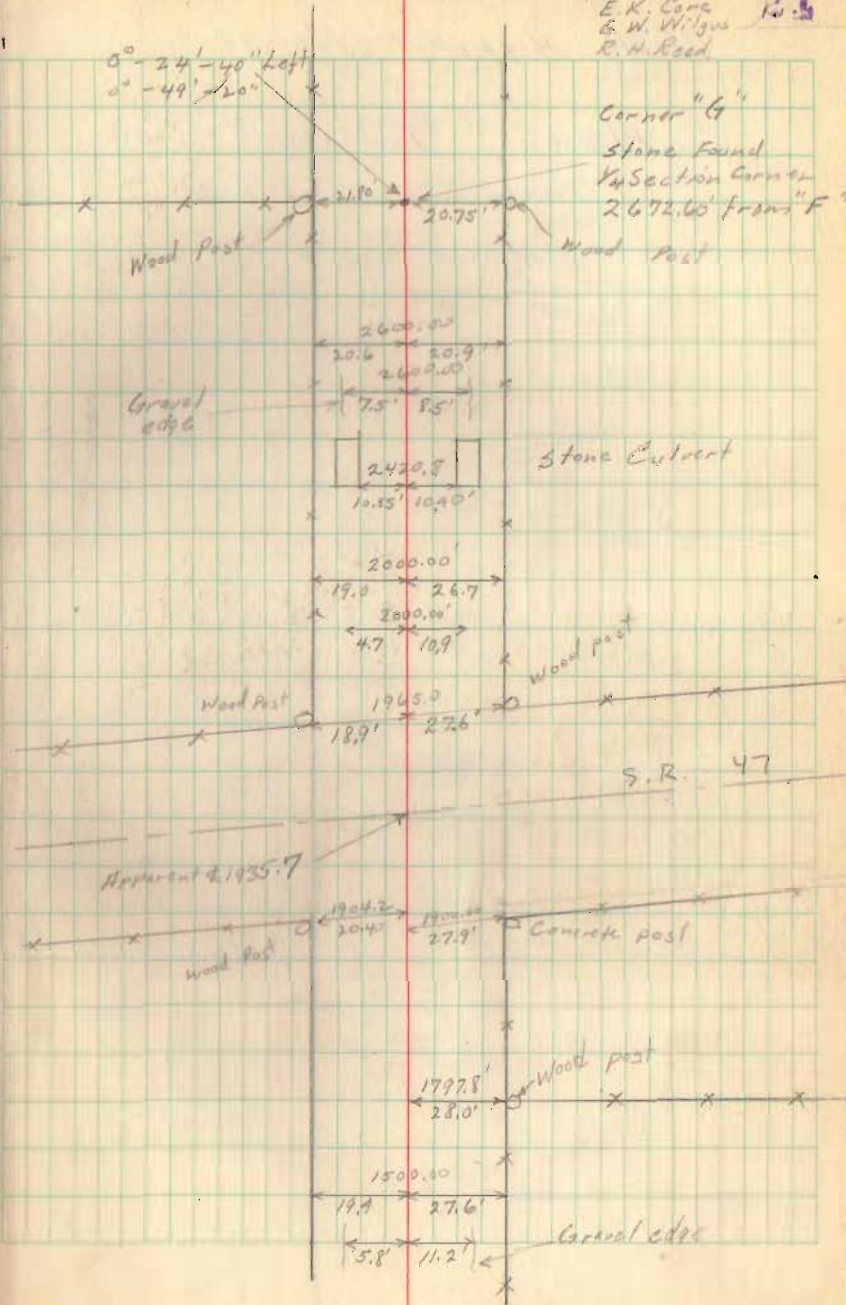 E. K. Core
G. W. Wilgus
R. H. Reed
0° - 24' - 40" Left
0° - 49' - 20"
Corner "G"
Stone Found
1/4 Section Corner
2672.60' from "F"
21.80'
20.75'
Wood Post
Wood Post
2600.00
20.6
20.9'
2600.00
7.5'
8.5'
Gravel
edge
2420.8
10.35'
10.40'
Stone Culvert
2000.00'
19.0
26.7
2000.00'
4.7
10.9
Wood post
Wood Post
1965.0
18.9'
27.6'
S.R. 47
Apparent ℄ 1935.7
1904.2
20.40
1900.00
27.9'
Concrete post
Wood Post
1797.8'
28.0'
Wood post
1500.00
19.4
27.6'
5.8'
11.2'
Gravel edge